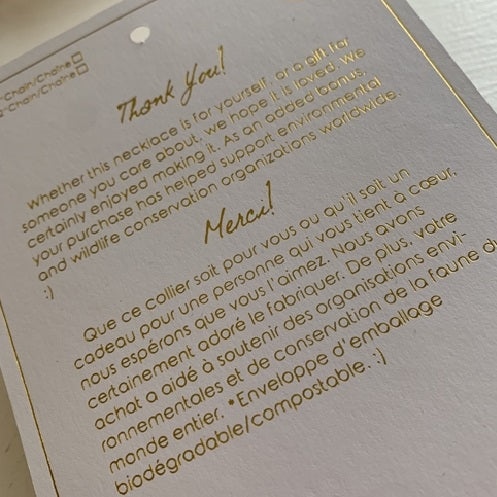 -Chain/Chaîne
-Chain/Chaîne
Thank You!
Whether this necklace is for yourself, or a gift for
someone you care about, we hope it is loved. We
certainly enjoyed making it. As an added bonus,
your purchase has helped support environmental
and wildlife conservation organizations worldwide.
:)
Merci!
Que ce collier soit pour vous ou qu'il soit un
cadeau pour une personne qui vous tient à cœur,
nous espérons que vous l'aimez. Nous avons
certainement adoré le fabriquer. De plus, votre
achat a aidé à soutenir des organisations envi-
ronnementales et de conservation de la faune d
monde entier. *Enveloppe d'emballage
biodégradable/compostable. :)